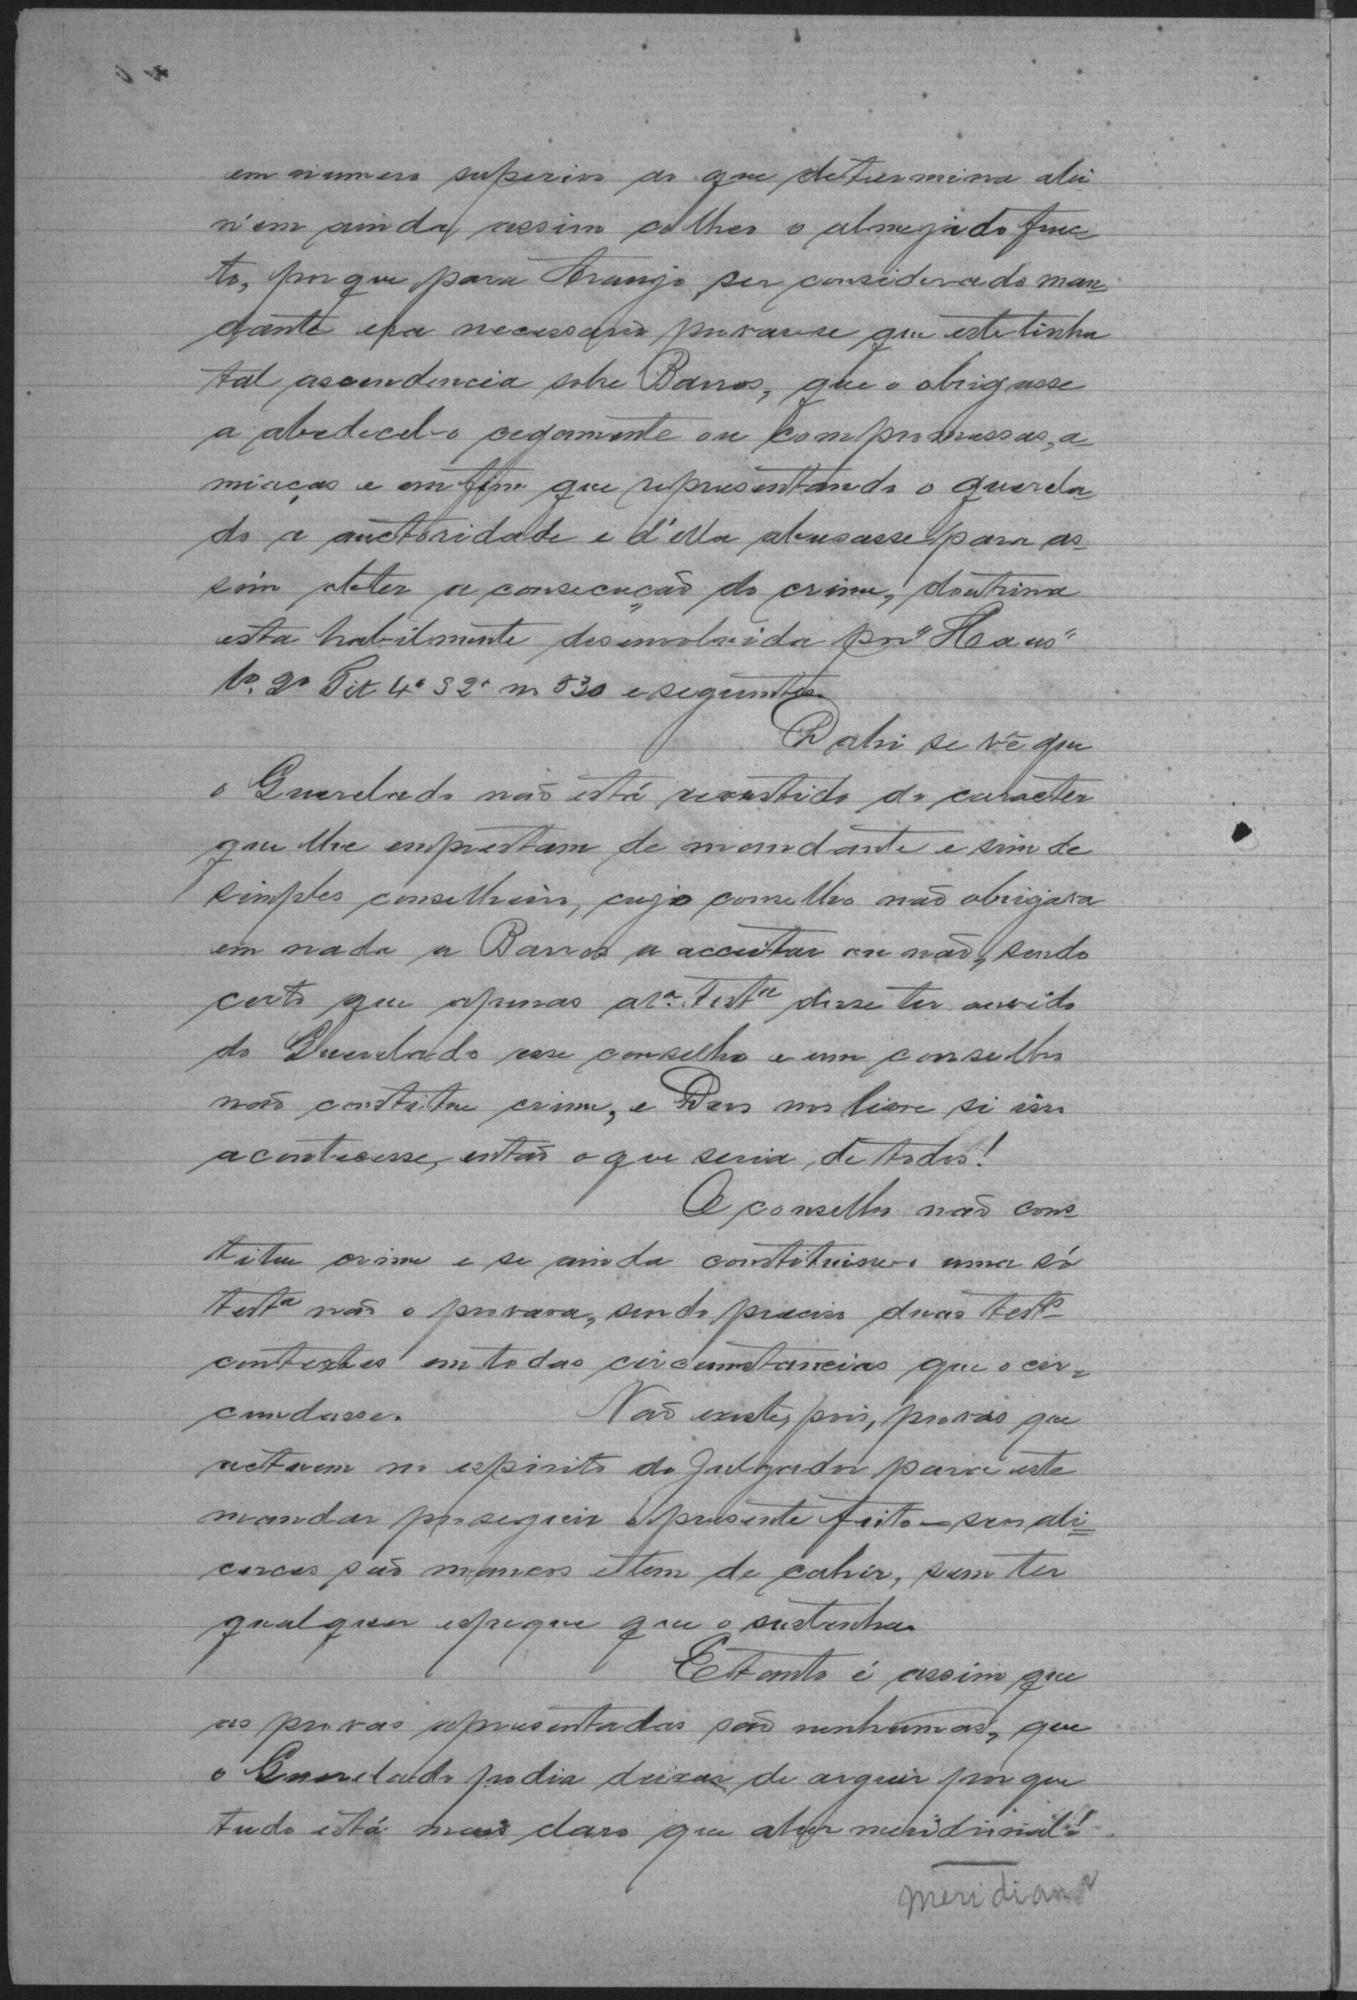 em numero superior ao que determina a lei
nem ainda assim colheo o almejado fruc-
to, por que para Araujo ser considerado man-
dante era necessario provar-se que este tinha
tal ascendencia sobre Barros, que o obrigasse
a obedecel-o cegamente ou com promessas, a-
miaças e em fim que representando o querela-
do a auctoridade e d'ella abusasse para as-
sim obter a consecução do crime, doutrina
esta habilmente desenvolvida por "Haus"
1º. 2º Tit. 4º § 2º n. 530 e seguintes.
Dahi se vê que
o Querelado não está revestido do caracter
que lhe emprestam de mandante e sim de
simples conselheiro, cujo conselho não obrigava
em nada a Barros a acceitar ou não, sendo
certo que apenas a 1ª. testª disse ter ouvido
do Querelado esse conselho e um conselho
não constitue crime, e Deus nos livre si isso
acontecesse, então o que seria de todos!
O conselho não cons-
titue crime e se ainda constituisse uma só
testª não o provara, sendo preciso duas testªs
contestes em todas circumstancias que o cir-
cumdasse. Não existe, pois, provas que
actuem no espirito do Julgador para este
mandar proseguir o presente feito — seus ali-
cerces são mancos e tem de cahir, sem ter
qualquer espeque que o sustenha.
E tanto é assim que
as provas apresentadas são nenhumas, que
o Querelado podia deixar de arguir por que
tudo está mais claro que a luz meridional!
meridiana